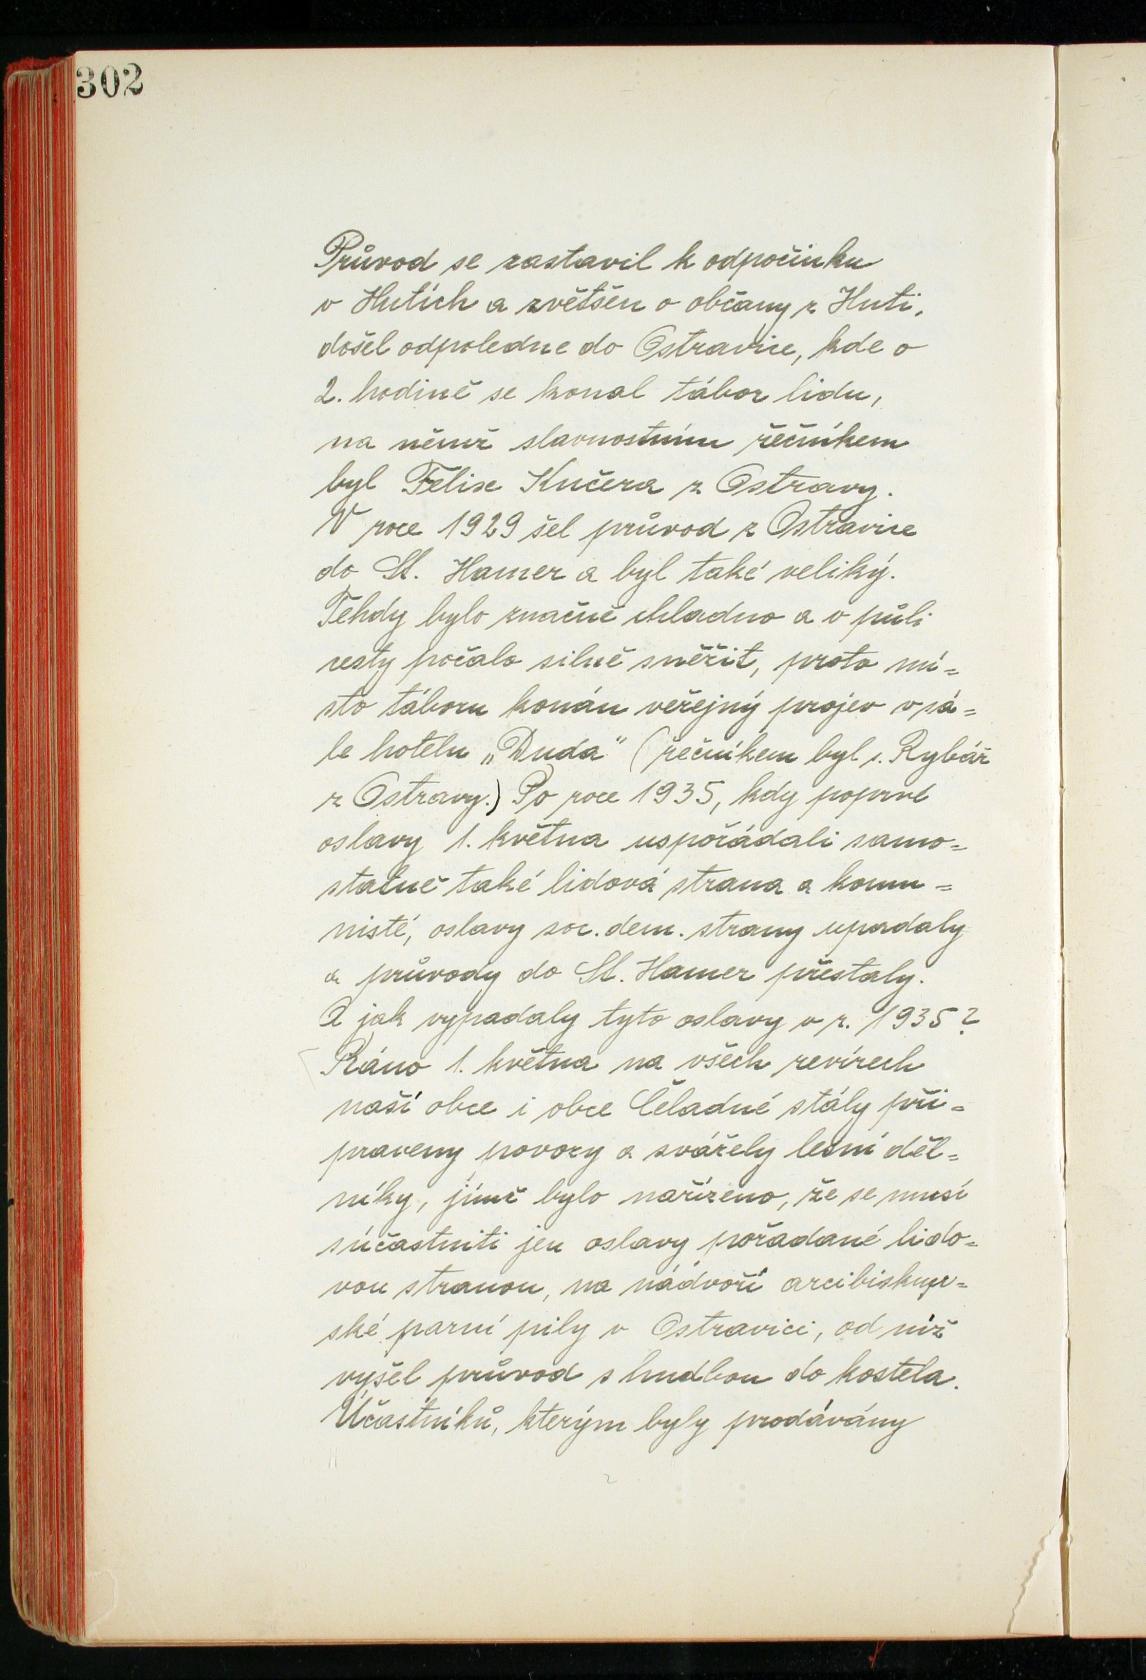 302
Průvod se zastavil k odpočinku
v Hutích a zvětšen o občany z Huti,
došel odpoledne do Ostravice, kde o
2. hodině se konal tábor lidu,
na němž slavnostním řečníkem
byl Felix Kučera z Ostravy.
V roce 1929 šel průvod z Ostravice
do St. Hamer a byl také veliký.
Tehdy bylo značně chladno a v půli
cesty počalo silně sněžit, proto mí=
sto táboru konán veřejný projev v sá=
le hotelu „Duda" (řečníkem byl s. Rybář
z Ostravy.) Po roce 1935, kdy poprvé
oslavy 1. května uspořádali samo=
statně také lidová strana a komu=
nisté, oslavy soc. dem. strany upadaly
a průvody do St. Hamer přestaly.
A jak vypadaly tyto oslavy v r. 1935?
Ráno 1. května na všech revírech
naší obce i obce Čeladné stály při=
praveny povozy a svážely lesní děl=
níky, jimž bylo nařízeno, že se musí
súčastniti jen oslavy pořádané lido=
vou stranou, na nádvoří arcibiskup=
ské parní pily v Ostravici, od níž
vyšel průvod s hudbou do kostela.
Účastníků, kterým byly prodávány